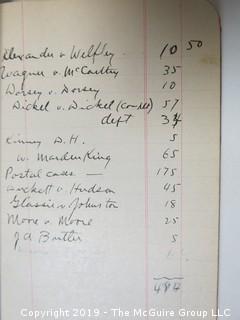 Alexander v. Welfley. 10 50
Wagner v. McCauley 35
Dorsey v. Dorsey 10
Dickel v. Dickel (counsel) 57
deft 34
Kinney D.H. 5
w. Marden King 65
Postal cases — 175
v. Hudson 45
Glassie v. Johnston 18
Moore v. Moore 25
J A Butler 5
484
Copyright 2019 - The McCarre Group LLC